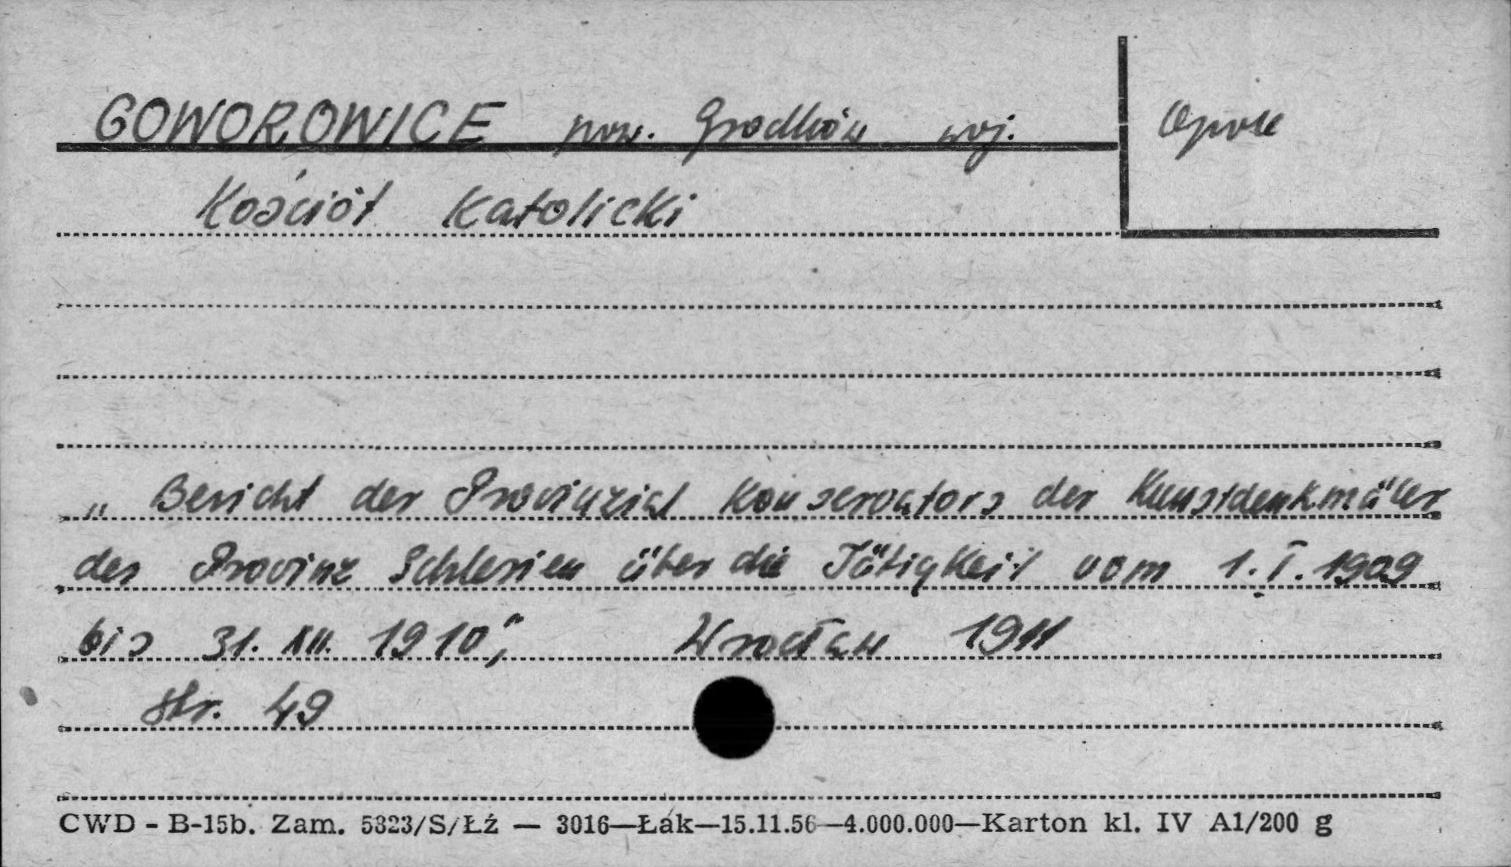 GOWOROWICE pow. Grodków woj. Opole
Kościół Katolicki
„Bericht des Provinzial Konservators der Kunstdenkmäler
der Provinz Schlesien über die Tätigkeit vom 1.I.1909
bis 31.XII.1910", Wrocław 1911
str. 49
CWD - B-15b. Zam. 5323/S/Łż — 3016—Łák—15.11.56—4.000.000—Karton kl. IV A1/200 g